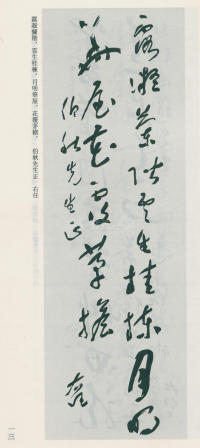 露凝蘭階雲生桂棟月明
華屋花覆茅檐
伯秋先生正
右任
露凝蘭階，雲生桂棟，月明華屋，花覆茅檐。 伯秋先生正 右任
一三